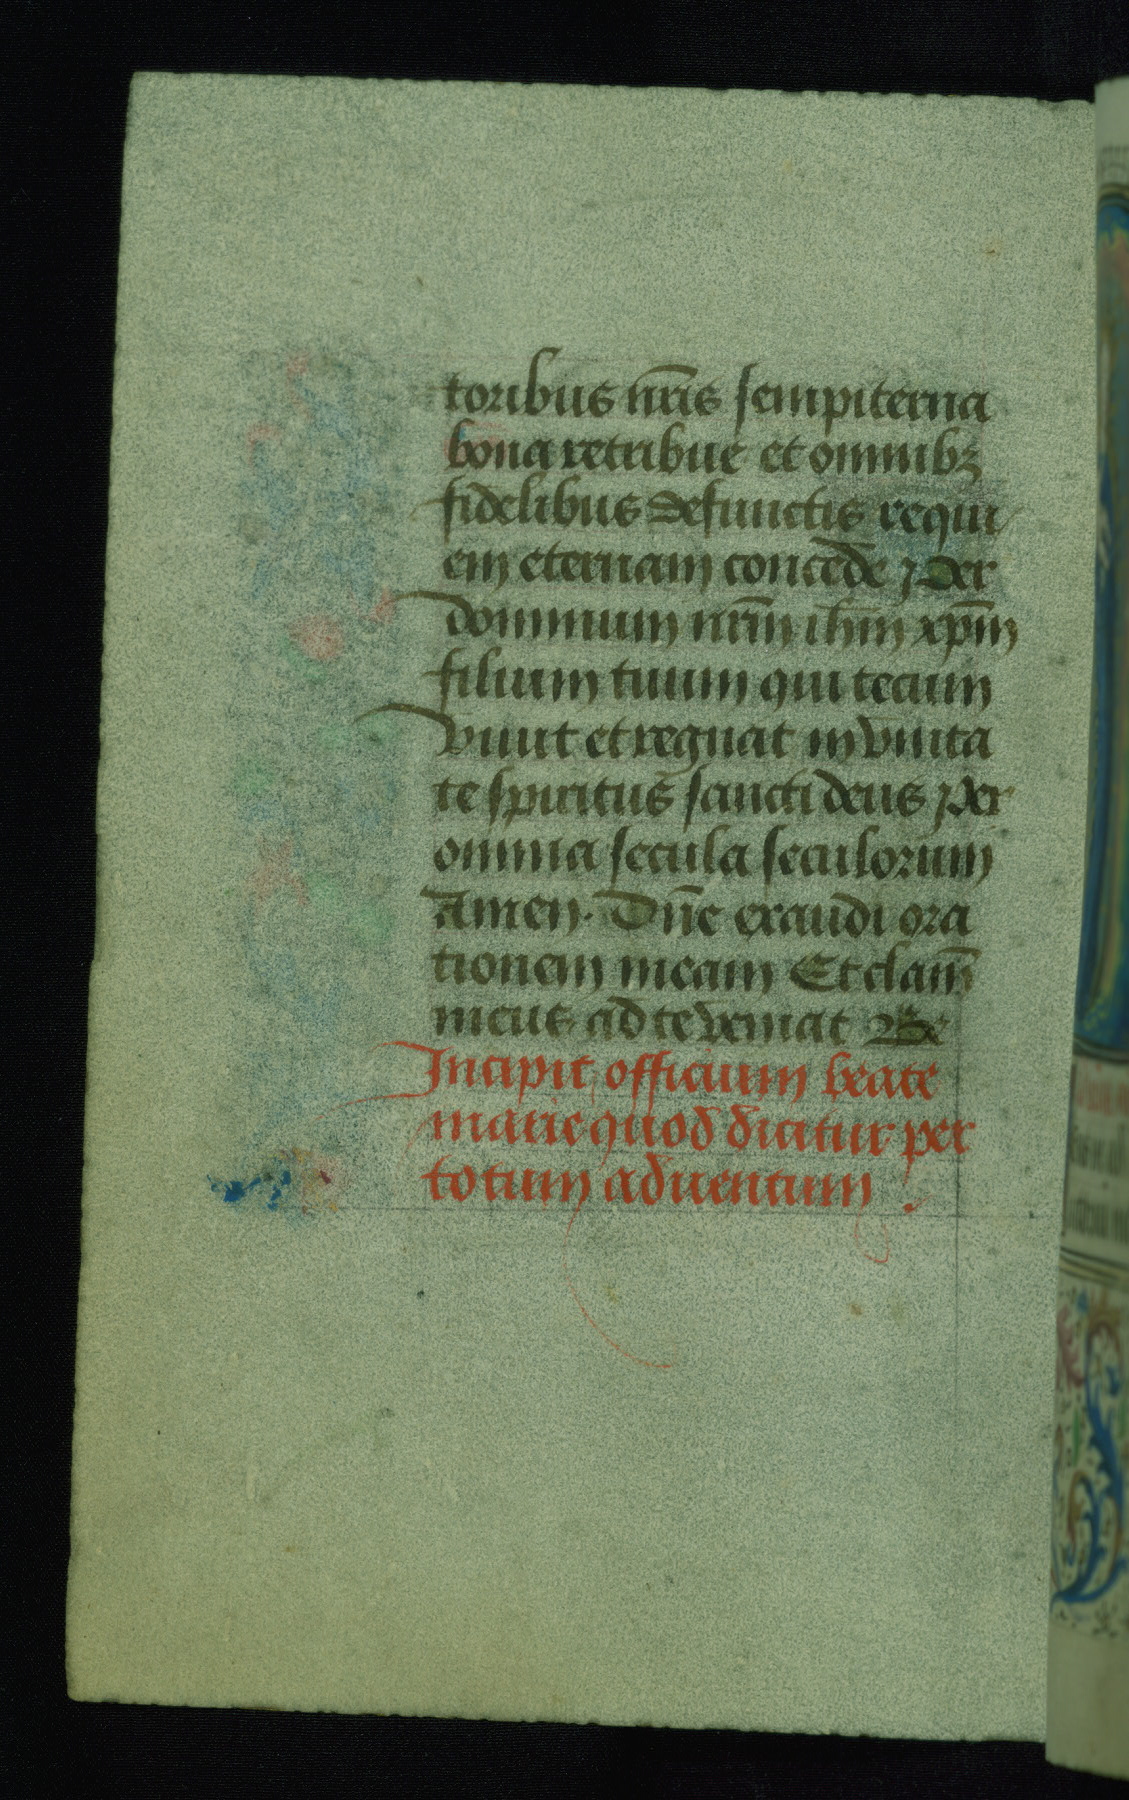 toribus nr̄is sempiterna
bona retribue et omnibꝫ
fidelibus defunctis requi
em eternam concede Per
dominum nr̄m ihm̄ xp̄m
filium tuum qui tecum
viuit et regnat in vnita
te spiritus sancti deus Per
omnia secula seculorum
Amen. Dn̄e exaudi ora
tionem meam Et clam̄
meus ad te veniat Be
Incipit officium beate
marie quod dicitur per
totum aduentum .